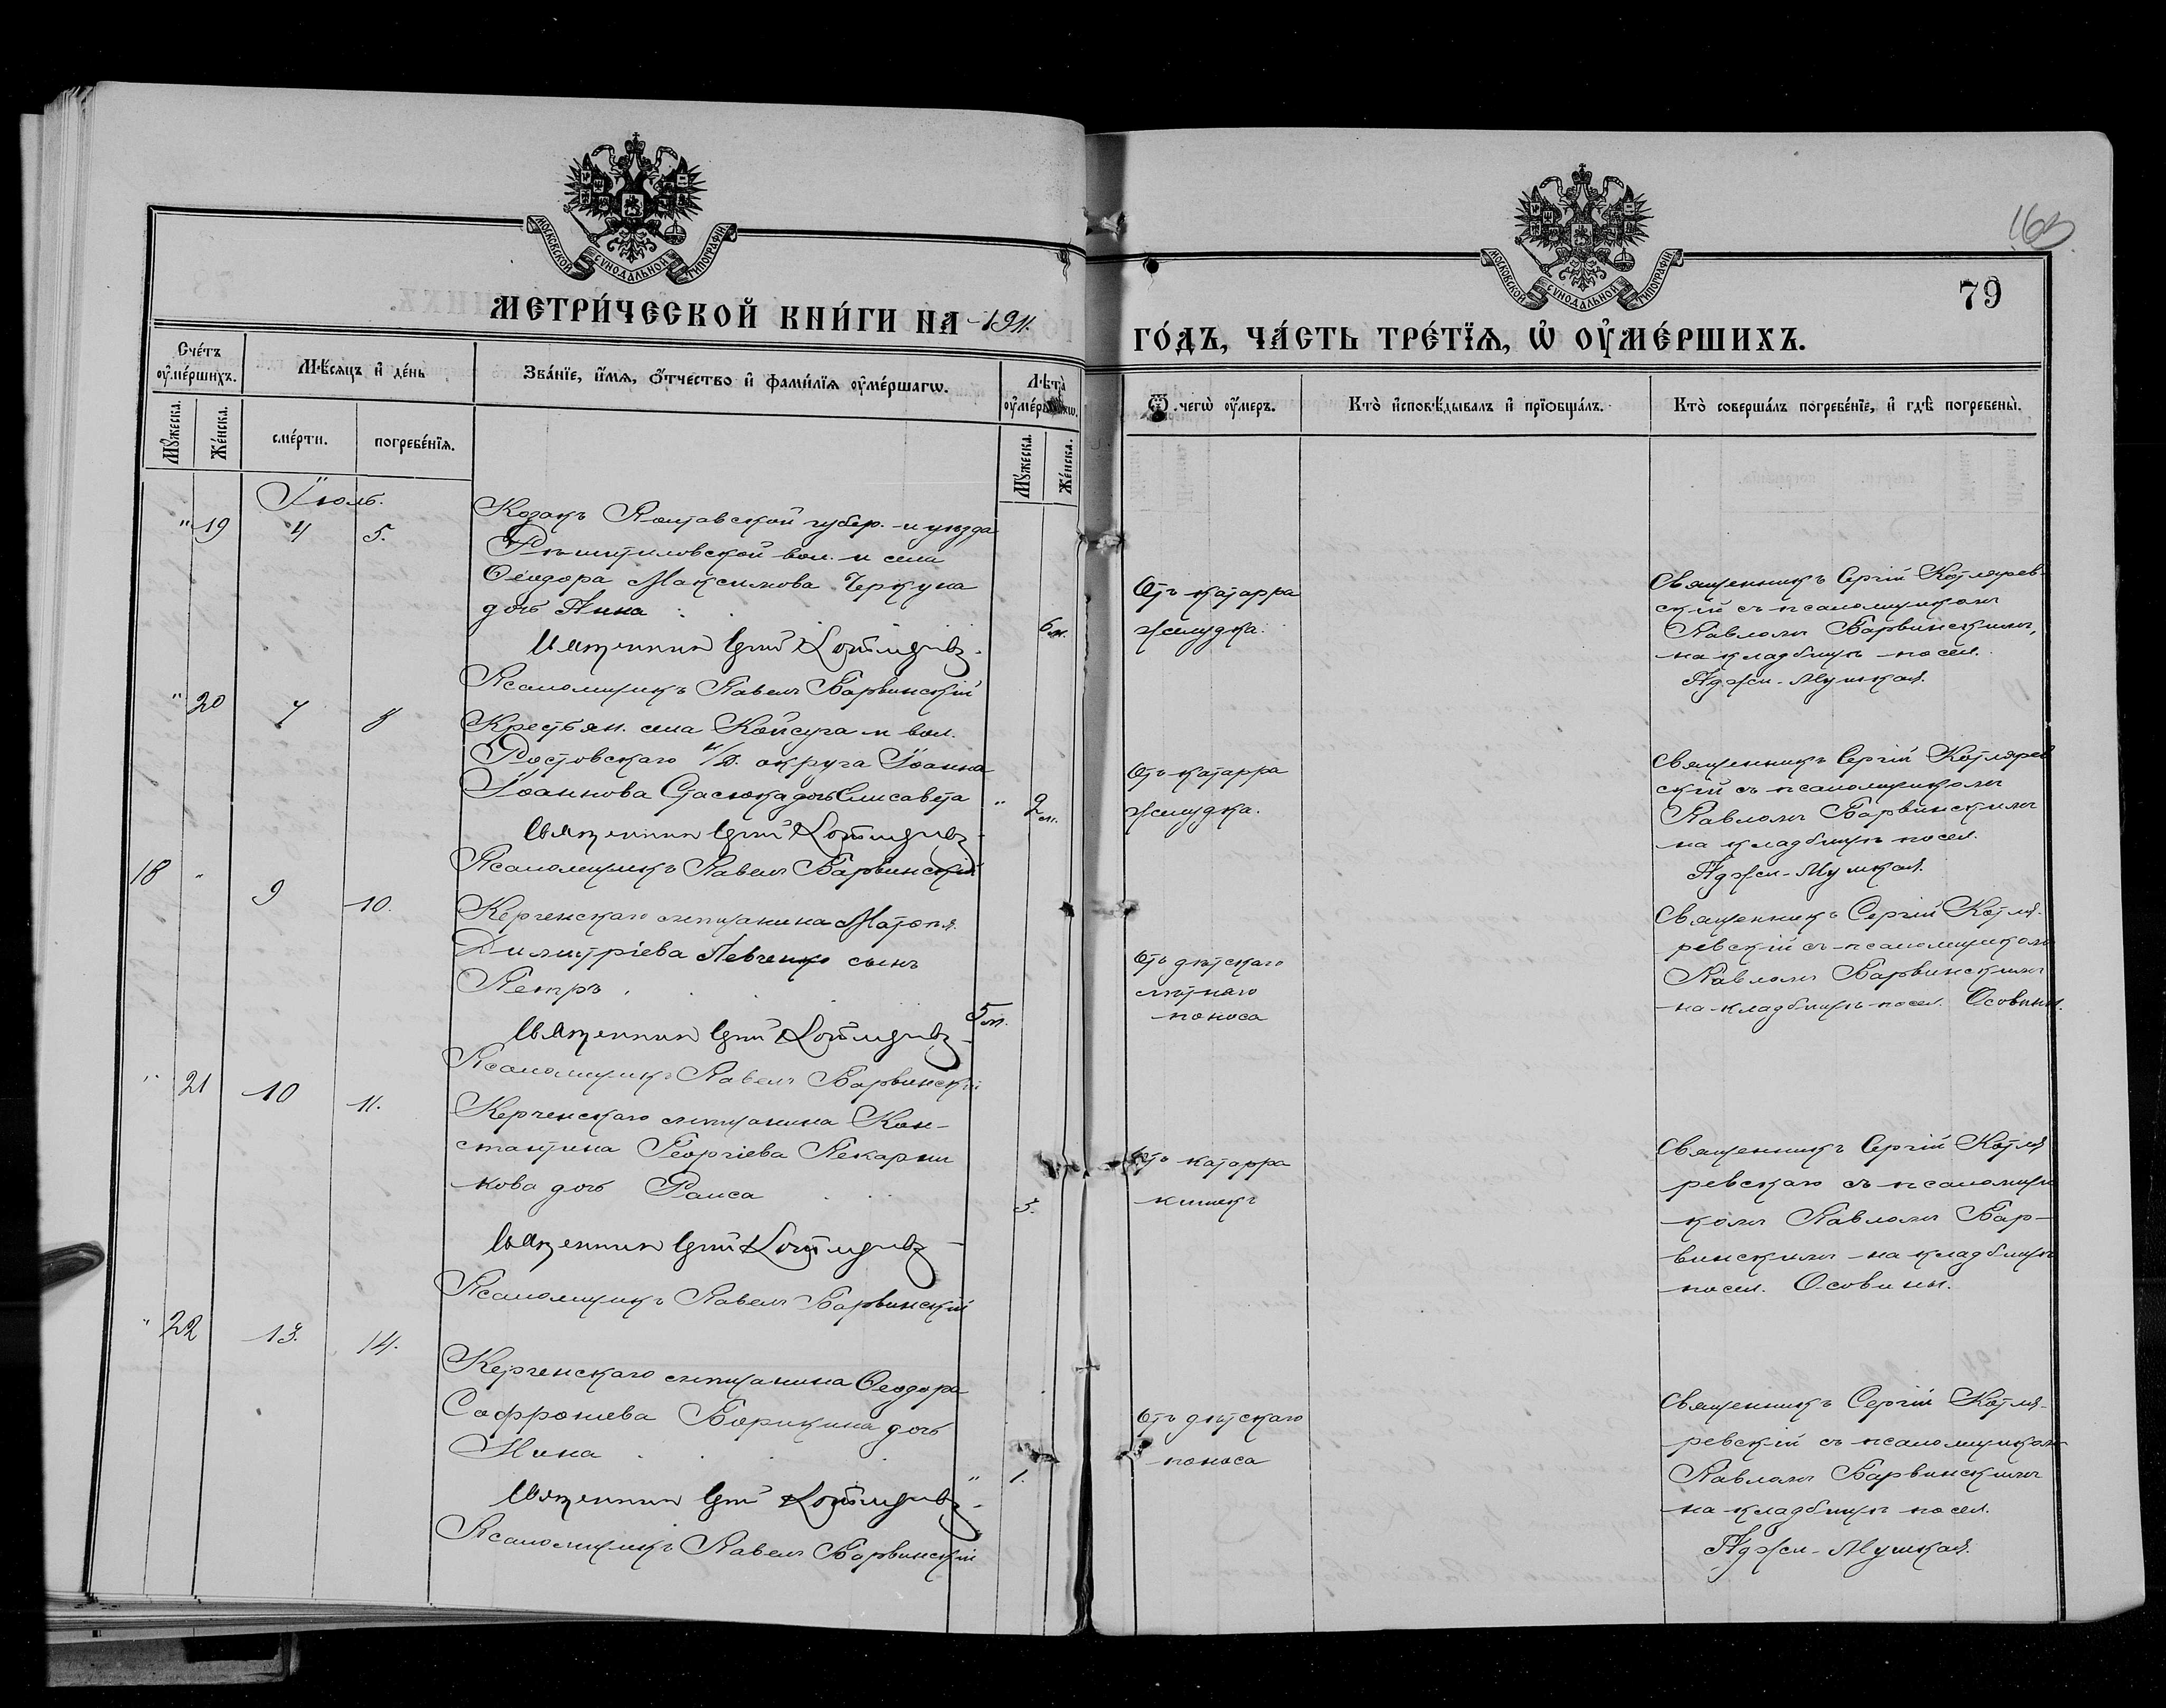 МОСКОВСКОЙ СУНОДАЛЬНОЙ ТИПОГРАФІИ
МОСКОВСКОЙ СУНОДАЛЬНОЙ ТИПОГРАФІИ
163
79
МЕТРИ́ЧЕСКОЙ КНИ́ГИ НА 1911.
ГО́ДЪ, ЧА́СТЬ ТРЕ́ТІѦ, Ѡ҆ ОУ҆МЕ́РШИХЪ.
Сче́тъ оу҆ме́ршихъ.
Мꙋ́жеска.
Же́нска.
Мѣ́сяцъ и҆ де́нь
сме́рти.
погребе́нїѧ.
Зва́нїе, и҆́мѧ, ѻ҆́тчество и҆ фами́лїѧ оу҆ме́ршагѡ.
Лѣ́та̀ оу҆ме́ршагѡ.
Мꙋ́жеска.
Же́нска.
Ѿ чегѡ̀ оу҆́меръ.
Кто̀ и҆сповѣ́дывалъ и҆ прїѡбща́лъ.
Кто̀ соверша́лъ погребе́нїе, и҆ гдѣ̀ погребены̀.
Іюль.
" 19 4 5.
Козакъ Полтавской губер. и уѣзда
Рѣшетиловской вол. и села
Ѳеодора Максимова Черкуна
дочь Анна
6 м.
Священникъ Сергій Котляревскій
Псаломщикъ Павелъ Барвинскій
Отъ катарра
желудка.
Священникъ Сергій Котлярев-
скій съ псаломщикомъ
Павломъ Барвинскимъ,
на кладбищѣ посел.
Аджи-Мушкай.
" 20 7 8
Крестьян. села Койсуга и вол.
Ростовскаго н/Д. округа Іоанна
Іоаннова Стасюка дочь Елисавета " 2 м.
Священникъ Сергій Котляревскій
Псаломщикъ Павелъ Барвинскій
Отъ катарра
желудка.
Священникъ Сергій Котлярев
скій съ псаломщикомъ
Павломъ Барвинскимъ
на кладбищѣ посел.
Аджи-Мушкай.
18 " 9 10.
Керченскаго мѣщанина Матѳѣя
Димитріева Левченко сынъ
Петръ
5 м.
Священникъ Сергій Котляревскій
Псаломщикъ Павелъ Барвинскій
Отъ дѣтскаго
лѣтняго
поноса
Священникъ Сергій Котля-
ревскій съ псаломщикомъ
Павломъ Барвинскимъ
на кладбищѣ посел. Осовины.
" 21 10 11.
Керченскаго мѣщанина Кон-
стантина Георгіева Пекарни
кова дочь Раиса
3.
Священникъ Сергій Котляревскій
Псаломщикъ Павелъ Барвинскій
Отъ катарра
кишекъ
Священникъ Сергій Котля
ревскаго съ псаломщи
комъ Павломъ Бар-
винскимъ на кладбищѣ
посел. Осовины.
" 22 13. 14.
Керченскаго мѣщанина Ѳеодора
Софроніева Борикина дочь
Нина
" 1.
Священникъ Сергій Котляревскій
Псаломщикъ Павелъ Барвинскій
Отъ дѣтскаго
поноса
Священникъ Сергій Котля-
ревскій съ псаломщикомъ
Павломъ Барвинскимъ
на кладбищѣ посел.
Аджи-Мушкай.